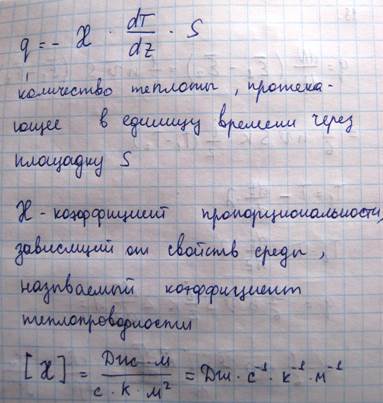 q = - ϰ · dT/dz · S
количество теплоты, протека-
ющее в единицу времени через
площадку S
ϰ - коэффициент пропорциональности,
зависящий от свойств среды,
называемый коэффициент
теплопроводности
[ϰ] = Дж · м / с · К · м² = Дж · с⁻¹ · К⁻¹ · м⁻¹